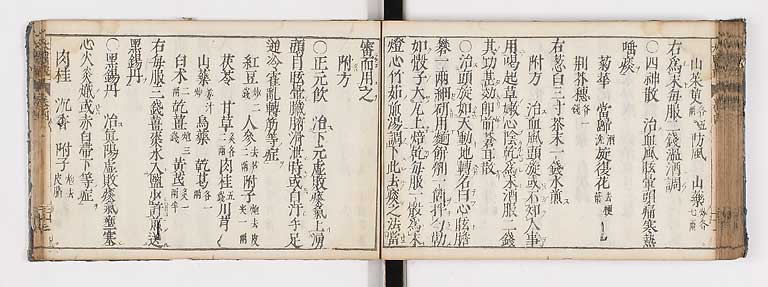 山茱萸 防風 山藥
右爲末每服二錢溫酒調
○四神散 治血風眩暈頭痛寒熱
唾痰
菊華 當歸 旋復花
荆芥穗
右葱白三寸茶末一錢水煎
附方 治血風頭旋或不知人事
用喝起草嫩心陰乾爲末酒服一錢
其功甚効即前蒼耳散
○治頭旋如天動地轉名曰心眩膽
礬一兩細研用麵餅劑一箇拌勻勒
如骰子大瓦上焙乾每服一㪚爲末
燈心竹茹煎湯調下此去痰之法當
審而用之
附方
○正元飲 治下元虛敗痰氣上湧
頭目眩暈臟腑滑泄時或自汗手足
逆冷霍亂轉筋等症
紅豆 人參 附子
茯苓 甘草 肉桂 川芎
山藥 烏藥 乾葛
白朮 乾薑 黃茋
右每服三錢薑棗水入鹽少許煎送
黑錫丹
○黑錫丹 治眞陽虛敗痰氣壅塞
心火炎熾或赤白帶下等症
肉桂 沉香 附子